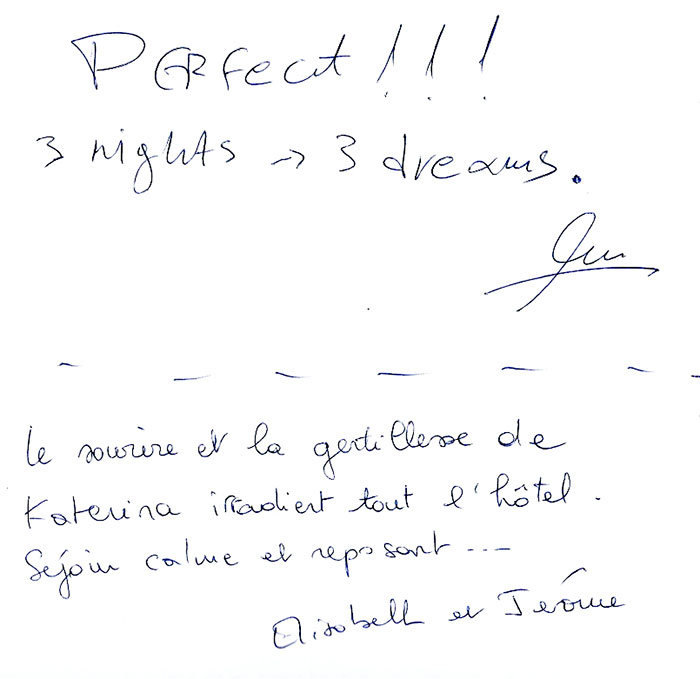 PERfect!!!
3 nights → 3 dreams.
le sourire et la gentillesse de
Katerina irradient tout l'hôtel.
Séjour calme et reposant ---
Elisabeth et Jérôme